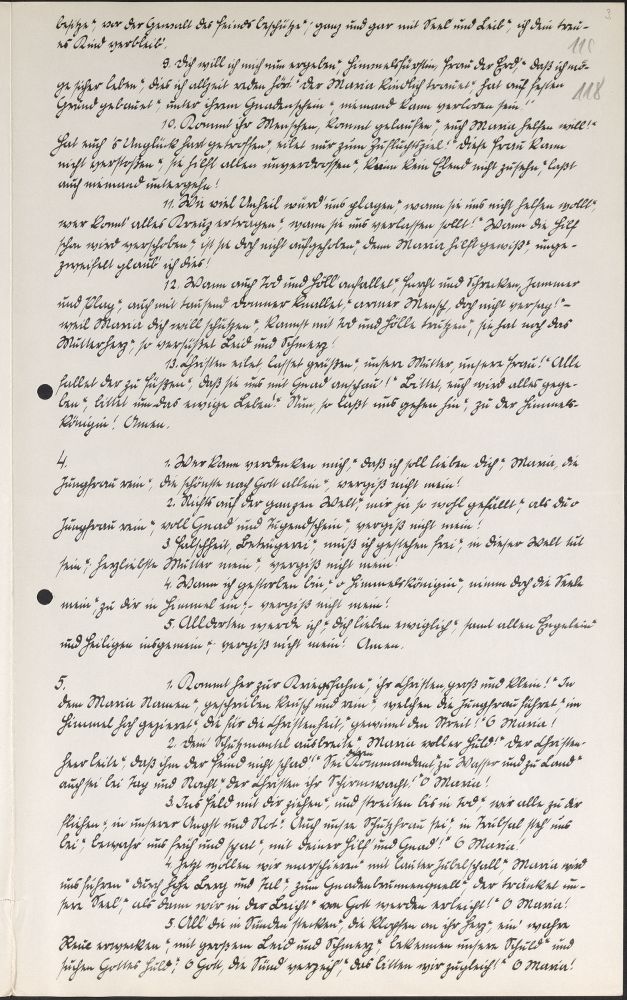 3.
beschütze", vor der Gewalt des Feinds beschütze", ganz und gar mit Seel und Leib", ich dein treu-
es Kind verbleib'.
118
9. Dich will ich mich nun ergeben", Himmelsfürstin, Frau der Erd'," daß ich mö-
ge sicher leben", dies ich allzeit reden hört." Der Maria kindlich trauet", hat auf festen
118
Grund gebauet", unter ihrem Gnadenschein", niemand kann verloren sein!
10. Kommt ihr Menschen, kommt gelaufen", euch Maria helfen will!"
Hat euch 's Unglück hart getroffen", eilet nur zum Zufluchtziel!" Diese Frau kann
nicht verstoßen", sie hilft allen unverdrossen", kann kein Elend nicht zusehn", laßt
auch niemand untergehn!
11. Wie viel Unheil würd' uns plagen" wann sie uns nicht helfen wollt",
wer könnt' alles Kreuz ertragen", wann sie uns verlassen sollt!" Wann die Hilf
schon wird verschoben", ist sie doch nicht aufgehoben", denn Maria hilft gewiß", unge-
zweifelt glaub' ich dies!
12. Wann auch Tod und Höll' anfallet" Furcht und Schrecken, Jammer
und Plag", auch mit tausend Donner knallet", armer Mensch, doch nicht verzag!"-
weil Maria dich will schützen", kannst mit Tod und Hölle trutzen", sie hat noch das
Mutterherz", so versüßet Leid und Schmerz!
13. Christen eilet, lasset grüßen", unsere Mutter, unsere Frau!" Alle
fallet der zu Füßen", daß sie uns mit Gnad anschau'!" Bittet, euch wird alles gege-
ben", bittet um das ewige Leben!" Nun, so laßt uns gehen hin", zu der Himmels-
königin! Amen.
4. 1. Wer kann verdenken mich," daß ich soll lieben dich", Maria, die
Jungfrau rein", die schönste nach Gott allein", vergiß nicht mein!
2. Nichts auf der ganzen Welt," mir ja so wohl gefällt" als du o
Jungfrau rein", voll Gnad' und Tugendschein", vergiß nicht mein!
3. Falschheit, Betrügerei", muß ich gestehen frei", in dieser Welt tut
sein", herzliebste Mutter mein", vergiß nicht mein!
4. Wann ich gestorben bin," o Himmelskönigin", nimm doch die Seele
mein" zu dir in Himmel ein";- vergiß nicht mein!
5. Alldorten werde ich" dich lieben ewiglich" samt allen Engelein
und Heiligen insgemein", vergiß nicht mein! Amen.
5. 1. Kommt her zur Kriegsfahne", ihr Christen, groß und klein!" In
dem Maria Namen", geschrieben keusch und rein", welchen die Jungfrau führet" im
Himmel hoch gezieret", die für die Christenheit", gewinnt den Streit!" O Maria!
2. Dein' Schutzmantel ausbreite", Maria voller Huld!" Der Christen-
heer leite", daß ihm der Feind nicht schad'!" Sei Kommandant zu Wasser und zu Land"
auch sei bei Tag und Nacht", der Christen ihr Schirmwacht!" O Maria!
3. Ins Feld mit dir ziehen", und streiten bis in Tod", wir alle zu dir
fliehen", in unserer Angst und Not." Auch unsre Schutzfrau sei", in Trübsal steh' uns
bei", bewahr' uns früh und spat", mit deiner Hilf' und Gnad'!" O Maria!
4. Jetzt wollen wir marschieren" mit lauter Jubelschall", Maria wird
uns führen" durch hohe Berg und Tal", zum Gnadenbrunnenquell", der tränket un-
sere Seel'," als dann wir in der Beicht" von Gott werden erleicht!" O Maria!
5. All' die in Sünden stecken", die klopfen an ihr Herz", ein' wahre
Reue erwecken" mit großem Leid und Schmerz", bekennen unsere Schuld" und
suchen Gottes Huld", O Gott, die Sünd' verzeih'," das bitten wir zugleich!" O Maria!